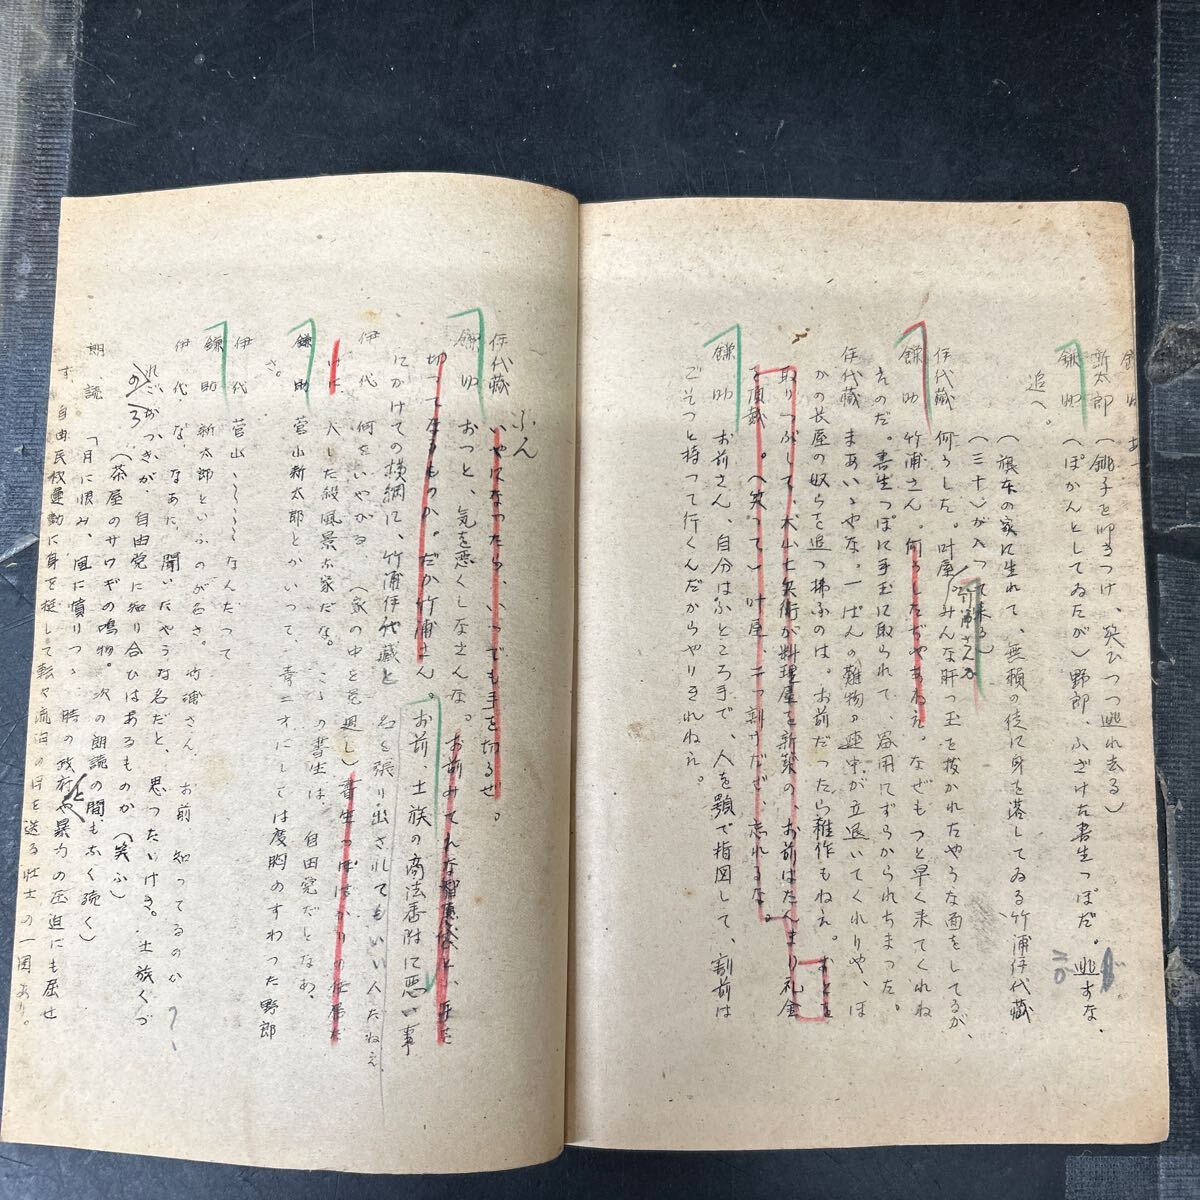 新太郎　（銚子を叩きつけ、笑ひつつ逃れ去る）
鎌　助　（ぽかんとしてゐたが）野郎、ふざけた書生っぽだ。逃すな、
追へ。
（旗本の家に生れて、無頼の徒に身を落してゐる竹浦伊代蔵
（三十）が入って来る）
伊代蔵　何うした。叶屋。みんな肝っ玉を抜かれたやうな面をしてるが、
竹浦さんか
鎌　助　竹浦さん。何うしたぢやあねえ。なぜもっと早く来てくれね
えのだ。書生っぽに手玉に取られて、
伊代蔵　まあいゝやな。一ばんの難物の連中が立退いてくれりや、ほ
かの長屋の奴らを追っ拂ふのは。お前だったら雑作もねえ。
取りつぶして、犬山七兵衛が料理屋を新築の、お前はたんまり礼金
を頂戴　。（笑って）叶屋、二つ割りだぜ、忘れるな。
鎌　助　お前さん、自分はふところ手で、人を顎で指図して、割前は
ごそっと持って行くんだからやりきれねえ。
ふん
伊代蔵　いやになったら、いつでも手を切るぜ。
鎌　助　おっと、気を悪くしなさんな。お前みてえな智恵
切ってなるものか。だが竹浦さん。お前　士族の商法番附に悪い事
にかけての横綱に、竹浦伊代蔵と　名を張り出されてもいい人だねえ
伊　代　何をいやがる。（家の中を見廻し）書生っぽばかりの
に　入した殺風景な家だな。　この書生は、自由党だとなあ、
鎌　助　菅山新太郎とかいって、青二才にしては度胸のすわった野郎
さ。
伊　代　菅山〜〜〜なんだって
鎌　助　新太郎といふのが名さ。竹浦さん、お前　知ってるのか　？
伊　代　な、なあに、聞いたやうな名だと、思っただけさ。士族くづ
れごろつきが、自由党に知り合ひはあるものか（笑ふ）
のろ
（茶屋のサワギの鳴物。次の朗読の間も、ふく続く）
朗　読　「月に恨み、風に憤りつゝ　時の政府と暴力の圧迫にも屈せ
ず、自由民权運動に身を挺して転々流泊の日を送る壮士の一團あり。